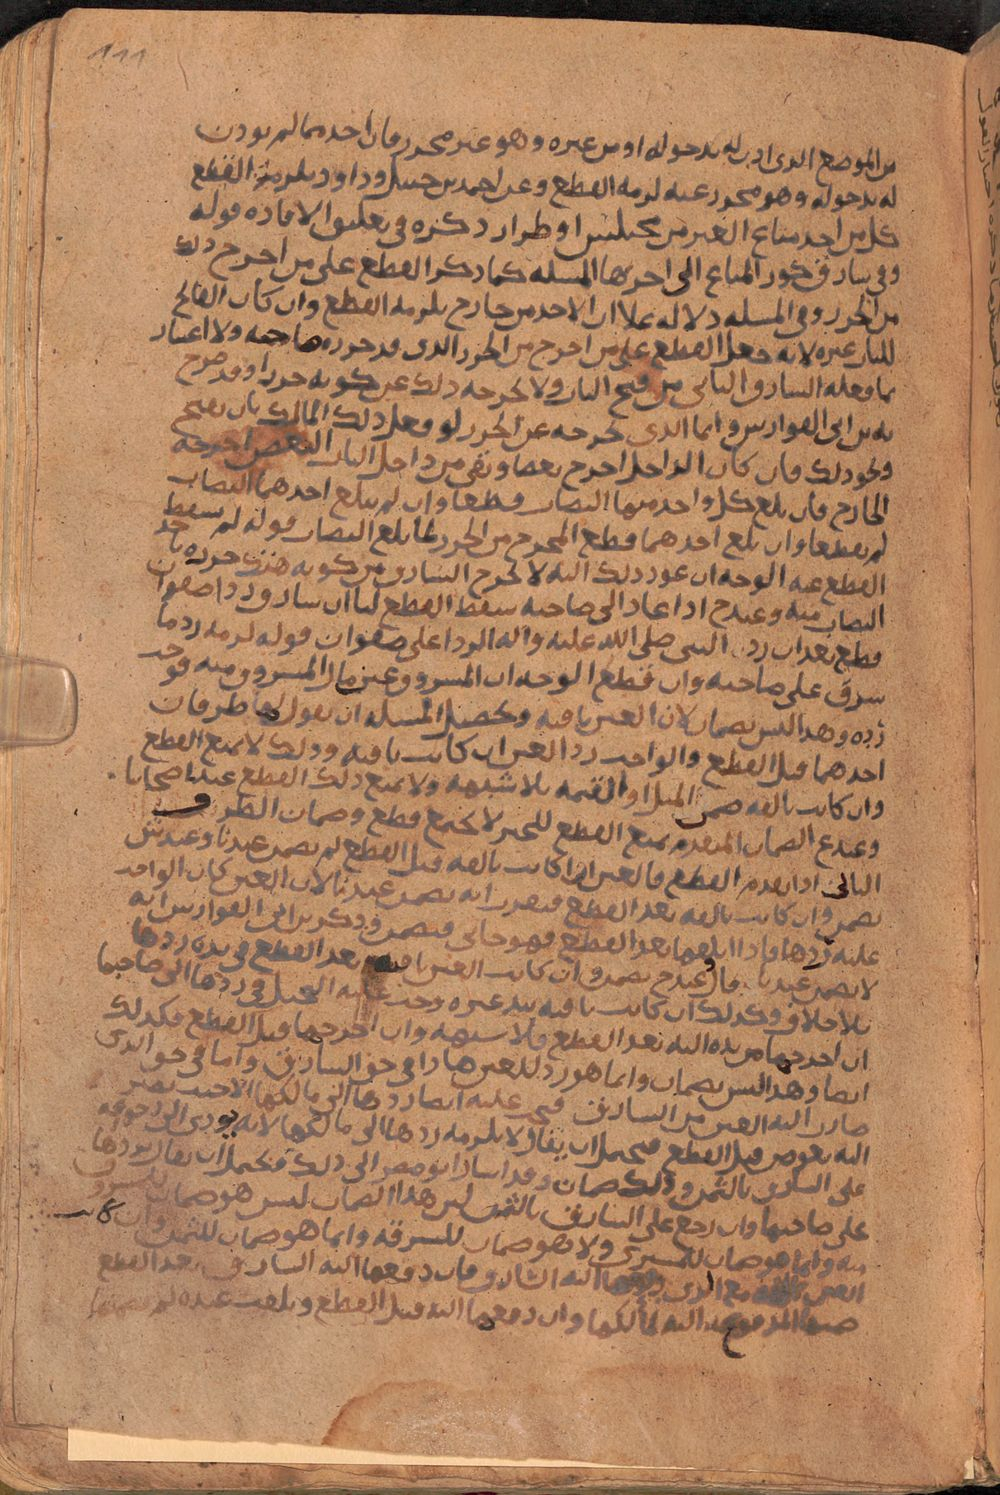 111
من الموضع الذي اذن له بدخوله او من غيره وهو غير محرز فان اخذ مما لم يوذن
له بدخوله وهو محرز عنه لزمه القطع وعن احمد بن حنبل وداود يلزمه القطع
كل من اخذ متاع الغير من مختلس او طرار ذكره في تعليق الافاده قوله
وفي سارق كور المتاع الى اخر هذا المسله كما ذكر القطع على من اخرج ذلك
من الحرز وفي المسله دلاله على ان الاخذ من خارج يلزمه القطع وان كان الفاتح
للباب غيره لانه جعل القطع على من اخرج من الحرز الذي قد حرزه صاحبه ولا اعتبار
بما فعله السارق الثاني من فتح الباب ولا يخرجه ذلك عن كونه حرزا وقد صرح
به بن ابي الفوارس وانما الذي يخرجه عن الحرز لو فعل ذلك المالك بان يفتح
ونحو ذلك فان كان الداخل اخرج بعضا وبقي من داخل الباب البعض اخرجه
الخارج فان بلغ كل واحد منهما النصاب قطعا وان لم يبلغ احدهما النصاب
لم يقطعا وان بلغ احدهما قطع المخرج من الحرز لما بلغ النصاب قوله لم يسقط
القطع عنه الوجه ان عود ذلك اليه لا يخرج السارق من كونه هتك حرزه
النصاب منه وعند ح اذا عاد الى صاحبه سقط القطع لنا ان سارق ردا صفوان
قطع بعد ان رد النبي صلى الله عليه وآله الردا على صفوان قوله لزمه رد ما
سرق على صاحبه وان قطع الوجه ان المسروق عين مال المسروق منه فوجب
رده وهذا ليس بضمان لان العين باقيه وتحصيل المسله ان نقول لها طرفان
احدهما قبل القطع والواجب رد العين ان كانت باقيه وذلك لا يمنع القطع
وان كانت تالفه ضمن المثل او القيمه بلا شبهه ولا يمنع ذلك القطع عند اصحابنا
وعند ع الضمان المتقدم يمنع القطع للخبر لا يجتمع قطع وضمان الطرف
الثاني اذا تقدم القطع فالعين اذا كانت تالفه قبل القطع لم يضمن عندنا وعند ش
يضمن وان كانت تالفه بعد القطع فيقرب انه يضمن عندنا لان العين كان الواجب
عليه ردها فاذا اتلفها بعد القطع فهو جاني فيضمن وذكر بن ابي الفوارس انه
لا يضمن عندنا وعند ح يضمن وان كانت العين باقيه بعد القطع في يده ردها
بلا خلاف وكذلك ان كانت باقيه بيد غيره وجب عليه الحيل في ردها الى صاحبها
ان اخرجها من يده اليه بعد القطع فلا شبهه وان اخرجها قبل القطع فكذلك
ايضا وهذا ليس بضمان وانما هو رد للعين هذا في حق السارق واما في حق الذي
صارت اليه العين من السارق فيجب عليه ايضا ردها الى مالكها الا حيث يصير
اليه بعوض قبل القطع فيحتمل ان يقال لا يلزمه ردها الى مالكها لانه يودي الى رجوعه
على السارق بالثمن وذلك ضمان وقد اشار ابو مضر الى ذلك ويحتمل ان يقال يردها
على صاحبها وان رجع على السارق بالثمن لان هذا الضمان ليس هو ضمان للمسروق
منه وانما هو ضمان للمشتري ولا هو ضمان للسرقه وانما هو ضمان للثمن وان كانت
العين تالفه مع الذي دفعها اليه السارق فان دفعها اليه السارق بعد القطع
ضمن المدفوعه اليه لمالكها وان دفعها اليه قبل القطع وتلفت عنده لم يضمنها